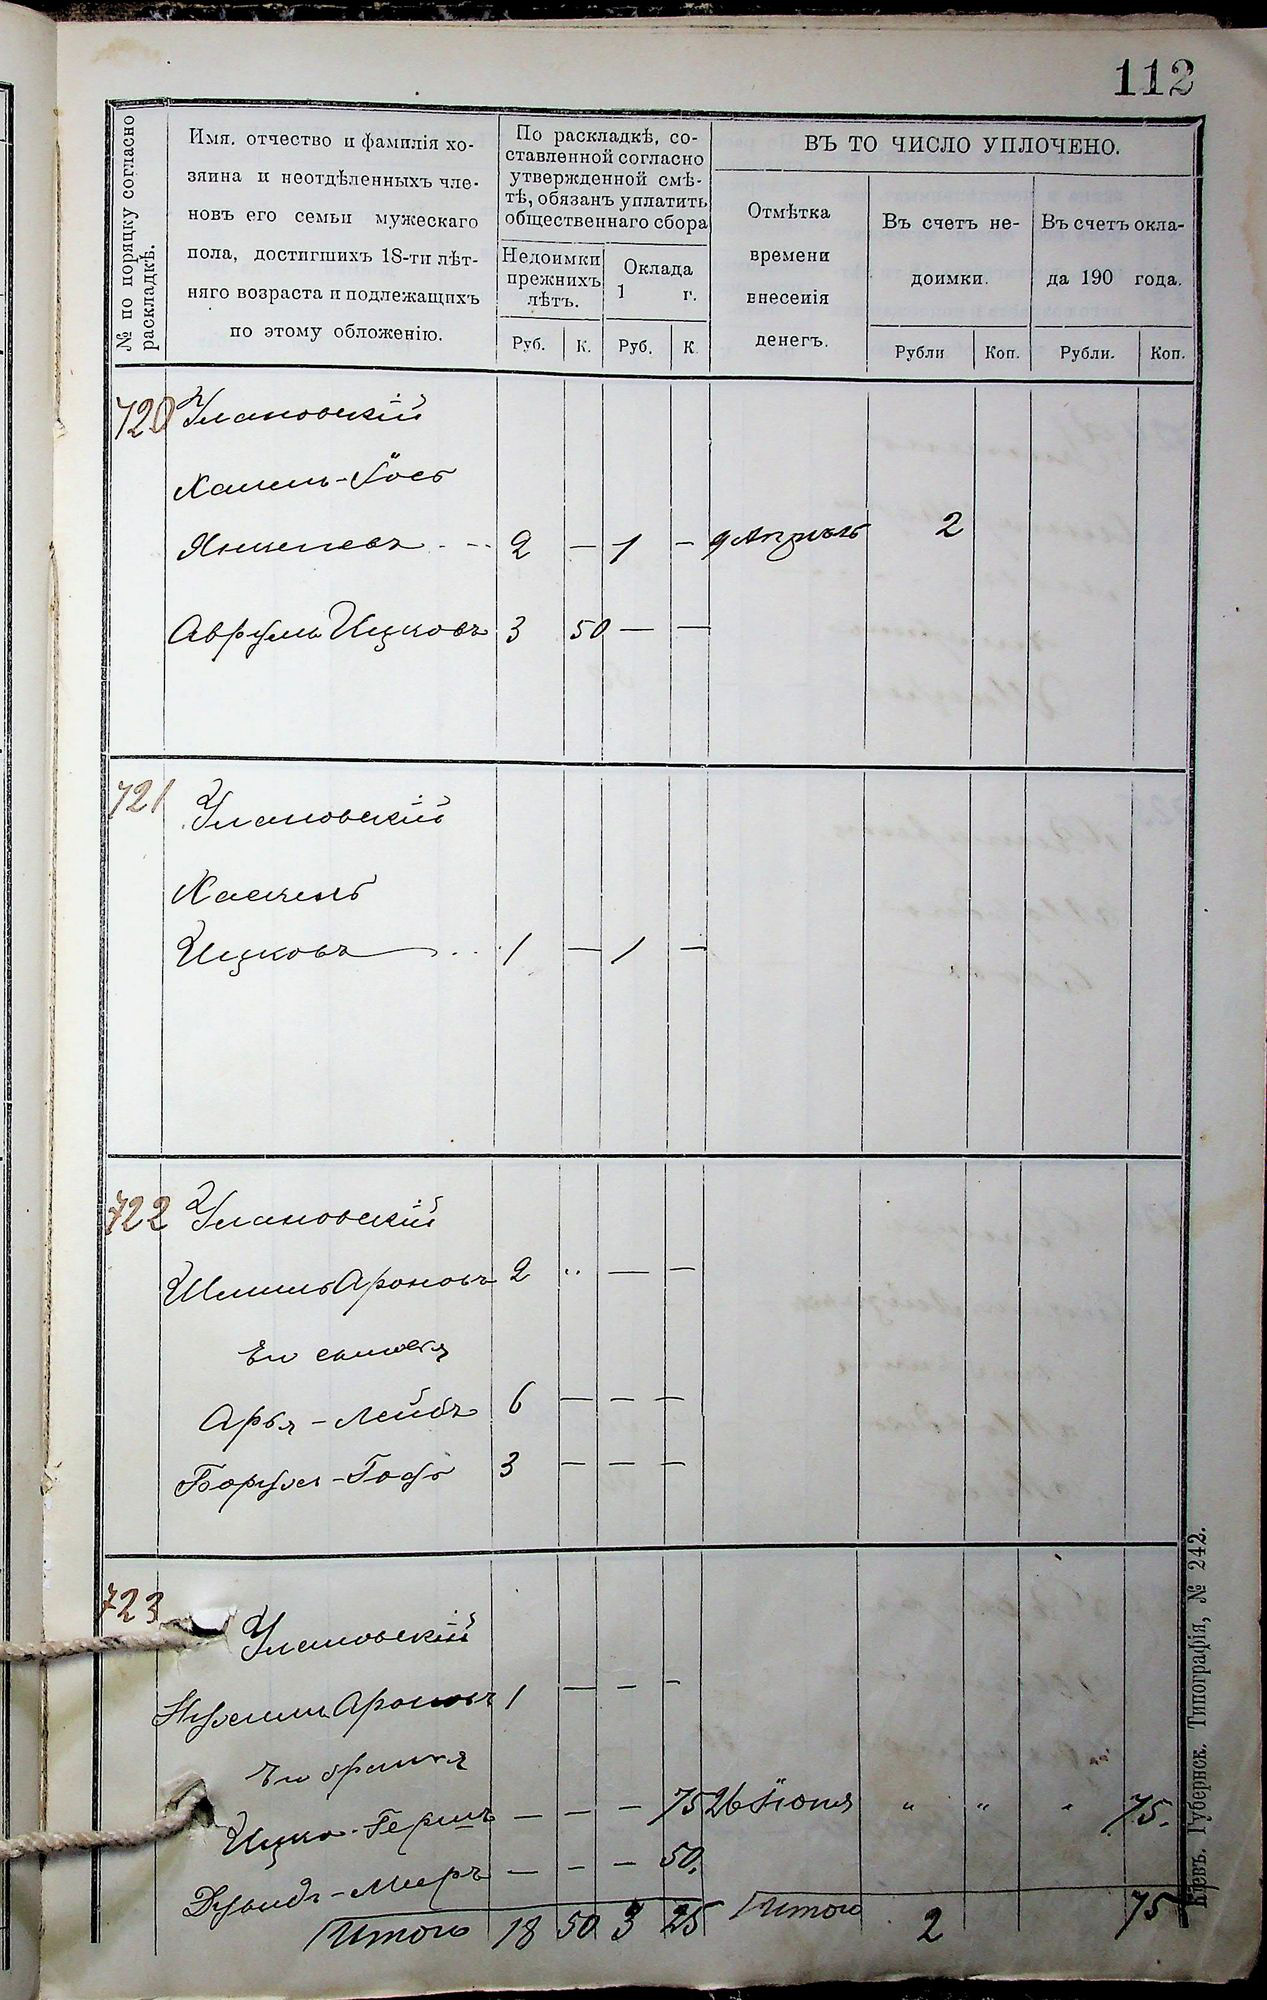 112
№ по порядку согласно раскладкѣ.
Имя, отчество и фамилія хо-
зяина и неотдѣленныхъ чле-
новъ его семьи мужескаго
пола, достигшихъ 18-ти лѣт-
няго возраста и подлежащихъ
по этому обложенію.
По раскладкѣ, со-
ставленной согласно
утвержденной смѣ-
тѣ, обязанъ уплатить
общественнаго сбора
Недоимки
прежнихъ
лѣтъ.
Оклада
1 г.
Руб. К. Руб. К
ВЪ ТО ЧИСЛО УПЛОЧЕНО.
Отмѣтка
времени
внесенія
денегъ.
Въ счетъ не-
доимки.
Въ счетъ окла-
да 190 года.
Рубли Коп. Рубли. Коп.
720 Улановскій
Хаимъ-Іось
Янкелевъ - - 2 — 1 — 9 Апрѣль 2
Аврумъ Ицковъ 3 50 — —
721 Улановскій
Ицковъ . . 1 — 1 —
722 Улановскій
Шмиль Ароновъ 2 " — —
Его сыновья
Арья-Лейбъ 6 — — —
3 — — —
723 Улановскій
Ароновъ 1 — — —
Его братья
Ицко-Гершъ — — — 75 26 Іюня " " " 75.
Дувидъ-Мееръ — — — 50.
Итого 18 50 3 25 Итого 2 75
Кіевъ. Губернск. Типографія, № 242.